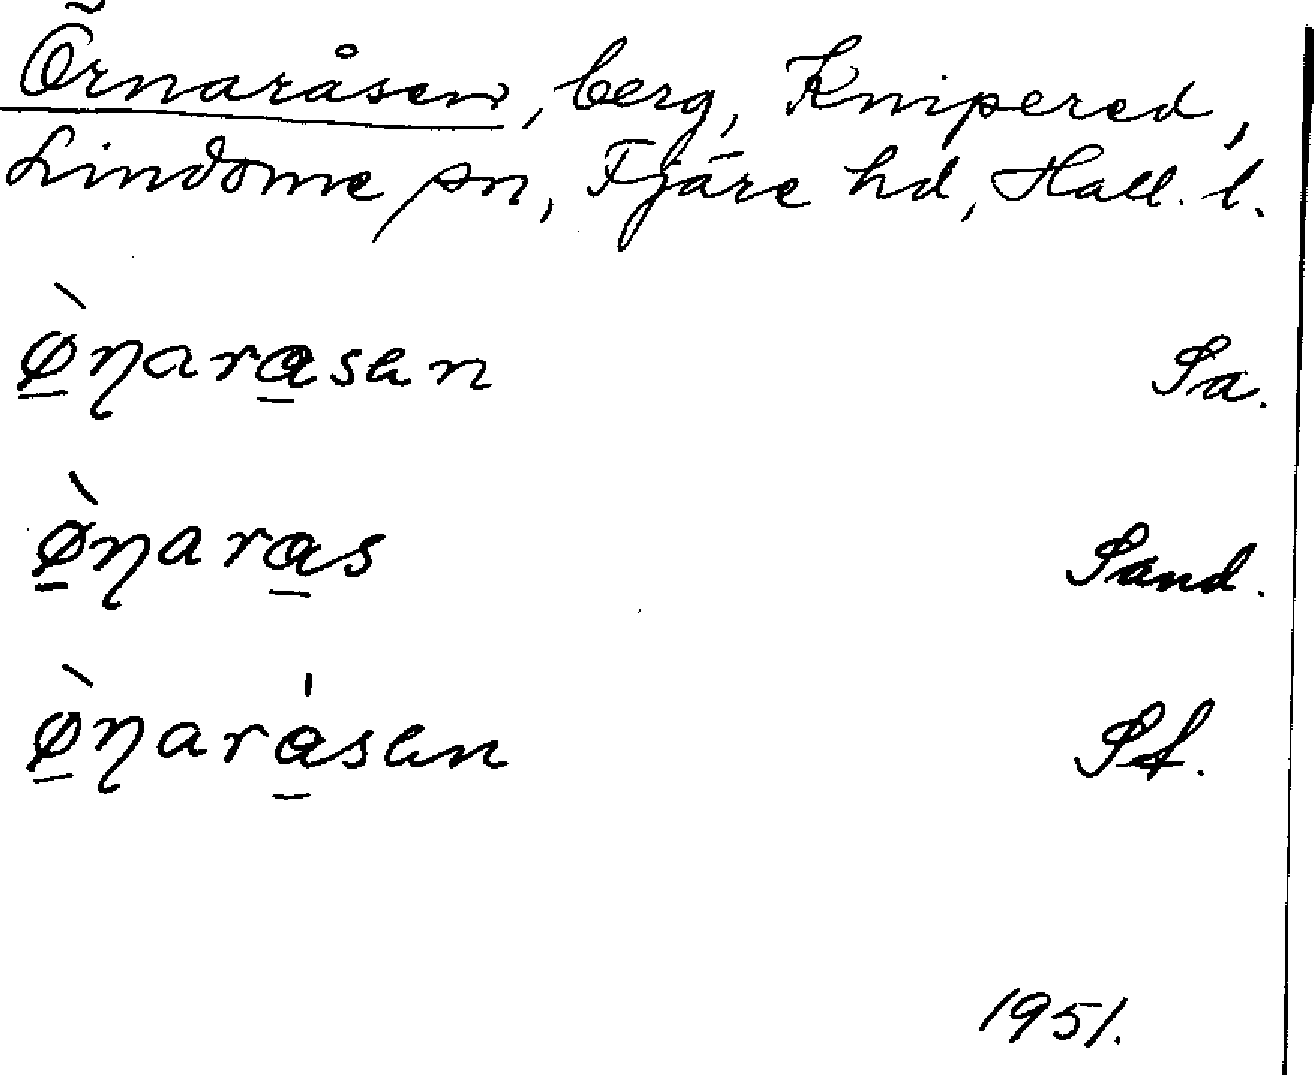 Örnaråsen, berg, Knipered,
Lindome sn, Fjäre hd, Hall. l.
ø̱̀ɳara̱sen Sa.
ø̱̀ɳara̱s Sand.
ø̱̀ɳará̱sen Sf.
1951.